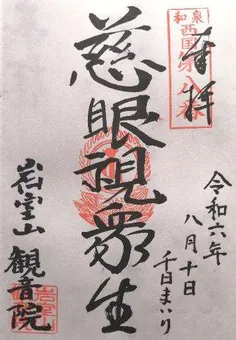 奉拝
和泉西国第八番
令和六年八月十日
千日まいり
慈眼視衆生
岩室山観音院